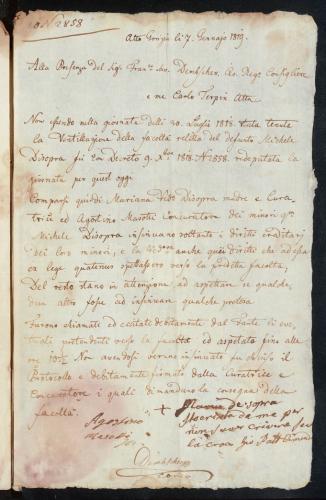 ad N. 2858
Atto Gorizia li 7. Gennajo 1819.
Alla Presenza del Sigr. Fran.co Sav. Dentscher, Ces. Regio Consigliere
e me Carlo Terpin Attu.
Non essendo nella giornata delli 30. Luglio 1818. stata tenuta
la Ventillazione della facoltà relitta del defunto Michele
Disopra fù con Decreto 9. 1818. N. 2858. rideputata la
giornata per quest oggi
Comparsi quindi Mariana Ved.a Disopra madre e Cura-
trice ed Agostino Marotti Concuratore dei minori
Michele Disopra insinuano soltanto i diritti ereditarj
dei loro minori, e la anche quei diritti che ad essa
ex lege quatenus spettassero verso la predetta facoltà,
Del resto stano in attenzione ad aspettare se qualche-
dun altro fosse ad insinuar qualche pretesa
Furono chiamati ed eccitati debitamente dal Fante li eve-
ntuali pretendenti verso la facoltà ed aspetato fino alle
ore 10 1/2 Non avendosi veruno insinuato fu chiuso il
Protocollo e debitamente firmato dalla Curatrice e
Concuratore i quali dimandano la consegna della
facoltà.
Agostino
Marotti
+ Maria de sopra
di me per
non saver scrivere
la croce
Dentscher